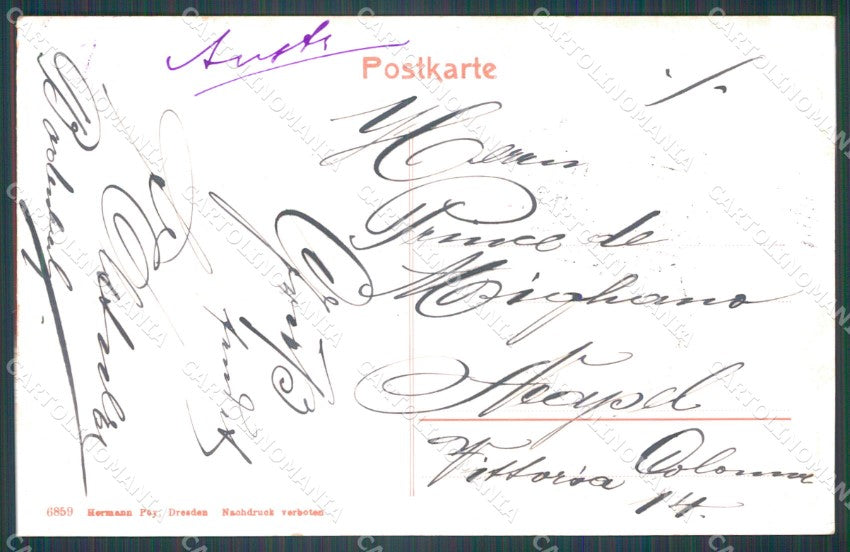 Austr
Postkarte
Herrn
Prince de
Migliano
Neapel
Vittoria Colonna
14.
Gruß
sendet
6859 Hermann Poy, Dresden Nachdruck verboten
CARTOLINOMANIA